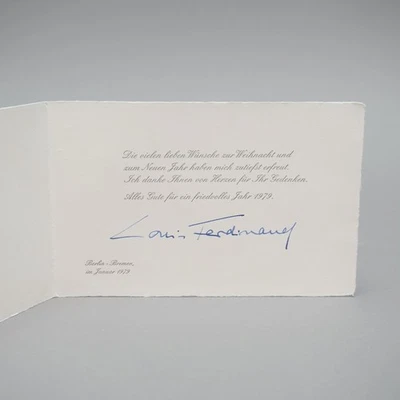 Die vielen lieben Wünsche zur Weihnacht und
zum Neuen Jahr haben mich zutiefst erfreut.
Ich danke Ihnen von Herzen für Ihr Gedenken.
Alles Gute für ein friedvolles Jahr 1979.
Louis Ferdinand
Berlin - Bremen,
im Januar 1979